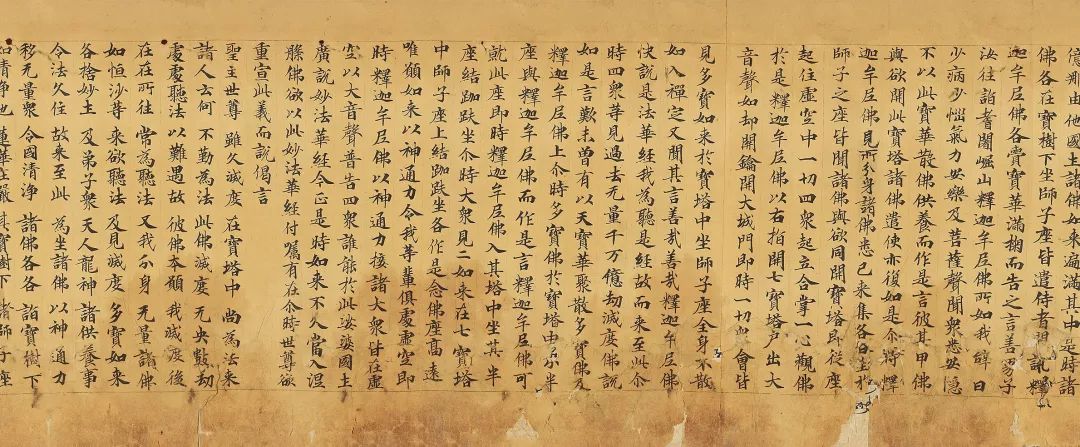 億那由他國土諸佛如來遍滿其中是時諸
佛各在寶樹下坐師子座皆遣侍者問訊釋
迦牟尼佛各賫寶華滿掬而告之言善男子
汝往詣耆闍崛山釋迦牟尼佛所如我辭曰
少病少惱氣力安樂及菩薩聲聞衆悉安隱
不以此寶華散佛供養而作是言彼某甲佛
與欲開此寶塔諸佛遣使亦復如是尒時釋
迦牟尼佛見所分身諸佛悉已來集各各坐於
師子之座皆聞諸佛與欲同開寶塔即從座
起住虛空中一切四衆起立合掌一心觀佛
於是釋迦牟尼佛以右指開七寶塔戶出大
音聲如却關鑰開大城門即時一切衆會皆
見多寶如來於寶塔中坐師子座全身不散
如入禪定又聞其言善哉善哉釋迦牟尼佛
快說是法華經我為聽是經故而來至此尒
時四衆等見過去无量千万億劫滅度佛說
如是言歎未曾有以天寶華聚散多寶佛及
釋迦牟尼佛上尒時多寶佛於寶塔中分半
座與釋迦牟尼佛而作是言釋迦牟尼佛可
就此座即時釋迦牟尼佛入其塔中坐其半
座結跏趺坐尒時大衆見二如來在七寶塔
中師子座上結跏趺坐各作是念佛座高遠
唯願如來以神通力令我等輩俱處虛空即
時釋迦牟尼佛以神通力接諸大衆皆在虛
空以大音聲普告四衆誰能於此娑婆國土
廣說妙法華經今正是時如來不久當入涅
槃佛欲以此妙法華經付囑有在尒時世尊欲
重宣此義而說偈言
聖主世尊 雖久滅度 在寶塔中 尚為法來
諸人云何 不勤為法 此佛滅度 无央數劫
處處聽法 以難遇故 彼佛本願 我滅度後
在在所往 常為聽法 又我分身 无量諸佛
如恒沙等 來欲聽法 及見滅度 多寶如來
各捨妙土 及弟子衆 天人龍神 諸供養事
令法久住 故來至此 為坐諸佛 以神通力
移无量衆 令國清淨 諸佛各各 詣寶樹下
如清淨池 蓮華莊嚴 其寶樹下 諸師子座